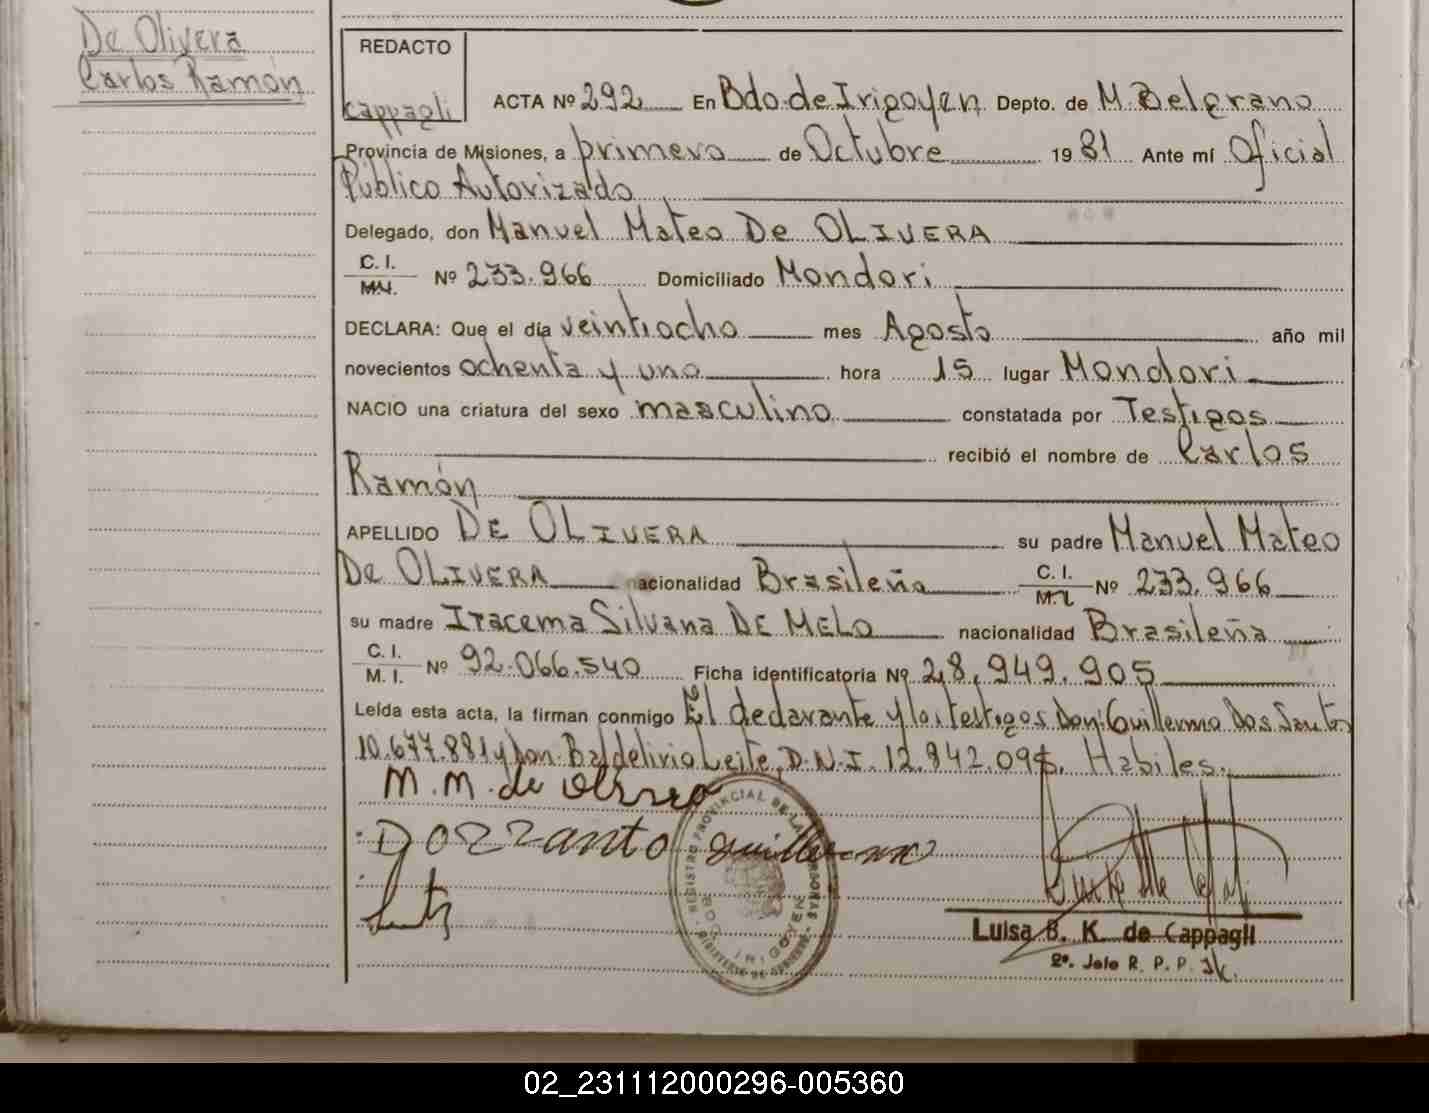 De Olivera
Carlos Ramón
REDACTO
Cappagli
ACTA Nº 292 En Bdo. de Irigoyen Depto. de M. Belgrano
Provincia de Misiones, a primero de Octubre 1981 Ante mí Oficial
Público Autorizado
Delegado, don Manuel Mateo De OLIVERA
C. I.
M.I. Nº 233.966 Domiciliado Mondori
DECLARA: Que el día veintiocho mes Agosto año mil
novecientos ochenta y uno hora 15 lugar Mondori
NACIO una criatura del sexo masculino constatada por Testigos
recibió el nombre de Carlos
Ramón
APELLIDO DE OLIVERA su padre Manuel Mateo
De OLIVERA nacionalidad Brasileña C. I. M.I. Nº 233.966
su madre Iracema Silvana DE MELO nacionalidad Brasileña
C. I.
M. I. Nº 92.066.540 Ficha identificatoria Nº 28.949.905
Leída esta acta, la firman conmigo El declarante y los testigos Don: Guillermo Dos Santos
10.677.881 y don Baldelirio Leite, D.N.I. 12.942.095. Habiles.
M. M. de Olivera
Dozzanto Guillermo
REGISTRO PROVINCIAL DE LAS PERSONAS
BDO. IRIGOYEN
Luisa B. K. de Cappagli
2º. Jefe R. P. P.
02_231112000296-005360